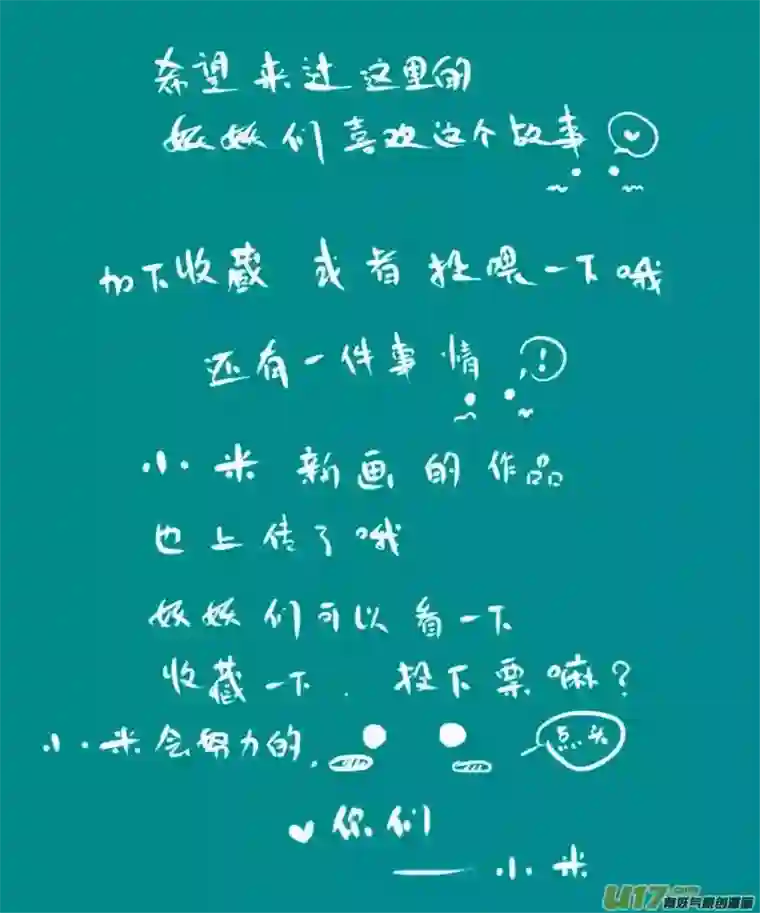 希望来过这里的
妖妖们喜欢这个故事
加下收藏 或者投喂一下哦
还有一件事情 !
小米新画的作品
也上传了哦
妖妖们可以看一下
收藏一下. 投下票嘛?
小米会努力的. 点头
你们
——小米
U17.com
有妖气原创漫画